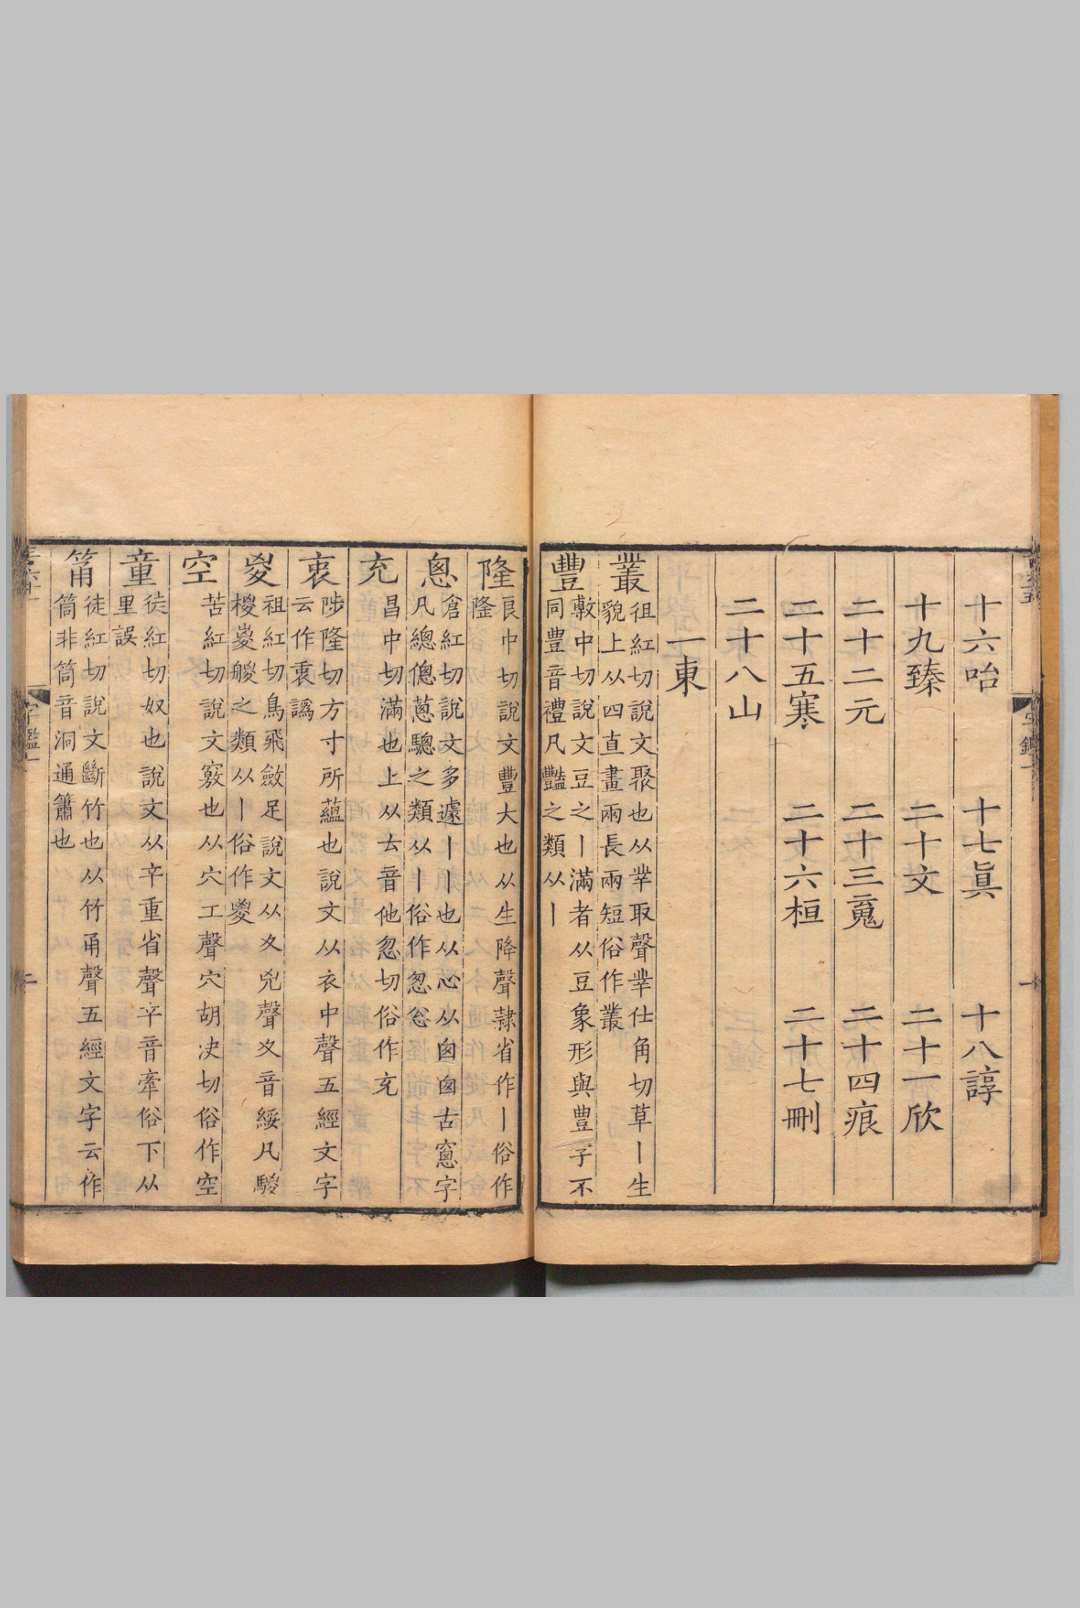 十六咍　十七眞　十八諄
十九臻　二十文　二十一欣
二十二元　二十三䰟　二十四痕
二十五寒　二十六桓　二十七刪
二十八山
一東
叢
祖紅切說文聚也从丵取聲丵仕角切草丨生
貌上从四直畫兩長兩短俗作叢
豐
敷中切說文豆之丨滿者从豆象形與豊字不
同豊音禮凡豔之類从丨
隆
良中切說文豐大也从生降聲隷省作丨俗作
隆
悤
倉紅切說文多遽丨丨也从心从囪囪古窻字
凡總傯蔥驄之類从丨俗作怱忩
充
昌中切滿也上从𠫓音他忽切俗作充
衷
陟隆切方寸所蘊也說文从衣中聲五經文字
云作衷譌
㚇
祖紅切鳥飛斂足說文从夊兇聲夊音綏凡騣
椶嵏艐之類从丨俗作㚇
空
苦紅切說文竅也从穴工聲穴胡決切俗作空
童
徒紅切奴也說文从䇂重省聲䇂音愆俗下从
里誤
筩
徒紅切說文斷竹也从竹甬聲五經文字云作
筒非筒音洞通簫也
字鑑一
二